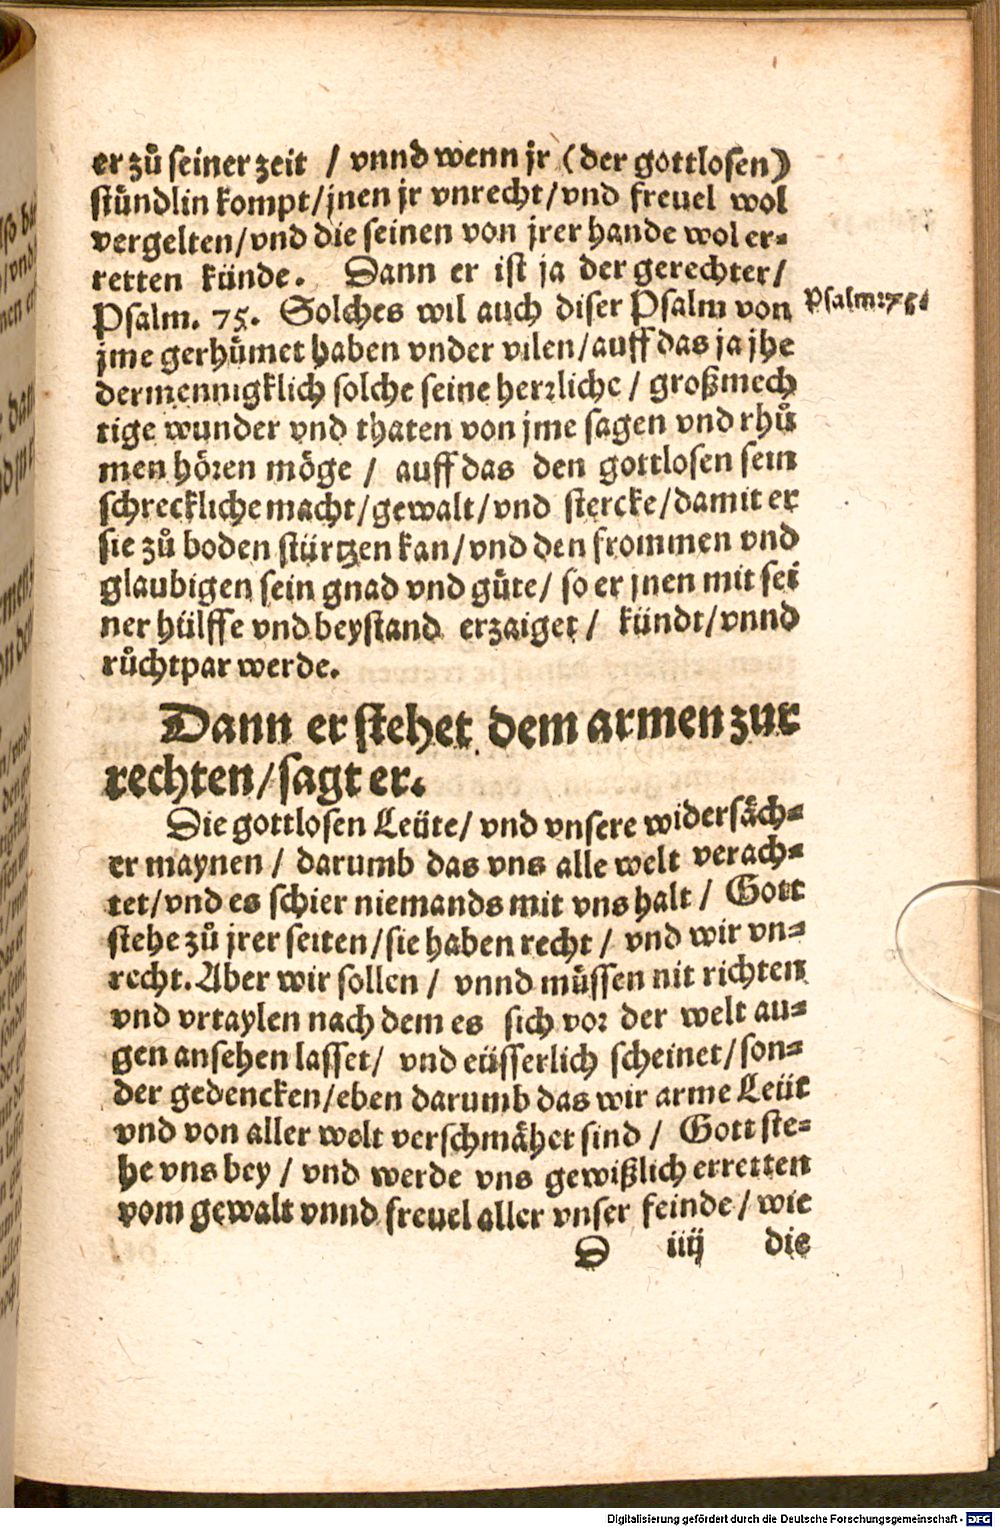 er zuͦ seiner zeit / vnnd wenn jr (der gottlosen)
stündlin kompt/jnen jr vnrecht/vnd freuel wol
vergelten/vnd die seinen von jrer hande wol er-
retten künde. Dann er ist ja der gerechter/
Psalm. 75. Solches wil auch diser Psalm von
Psalm: 75.
jme gerhuͤmet haben vnder vilen/auff das ja jhe
dermennigklich solche seine herꝛliche / großmech
tige wunder vnd thaten von jme sagen vnd rhuͦ
men hoͤꝛen moͤge / auff das den gottlosen sein
schreckliche macht/gewalt/vnd stercke/damit er
sie zuͦ boden stürtzen kan/vnd den frommen vnd
glaubigen sein gnad vnd guͤte/ so er jnen mit sei
ner hülffe vnd beystand erzaiget / kündt/vnnd
ruͦchtpar werde.
Dann er stehet dem armen zur
rechten/sagt er.
Die gottlosen Leüte/ vnd vnsere widersaͤch-
er maynen / darumb das vns alle welt verach-
tet/vnd es schier niemands mit vns halt / Gott
stehe zuͦ jrer seiten/sie haben recht / vnd wir vn-
recht. Aber wir sollen / vnnd muͤssen nit richten
vnd vrtaylen nach dem es sich voꝛ der welt au-
gen ansehen lasset/ vnd eüsserlich scheinet/son-
der gedencken/eben darumb das wir arme Leüt
vnd von aller welt verschmaͤhet sind / Gott ste-
he vns bey / vnd werde vns gewißlich erretten
vom gewalt vnnd freuel aller vnser feinde/ wie
D iiij die
Digitalisierung gefördert durch die Deutsche Forschungsgemeinschaft - DFG